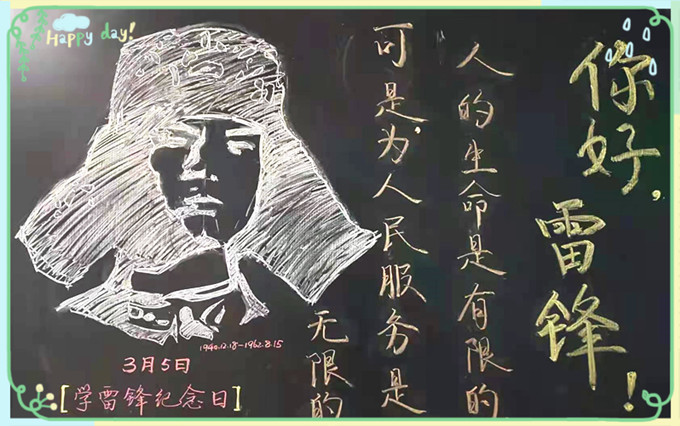 Happy day!
你好,
雷锋!
人的生命是有限的
可是,为人民服务是
无限的
1940.12.18-1962.8.15
3月5日
[学雷锋纪念日]